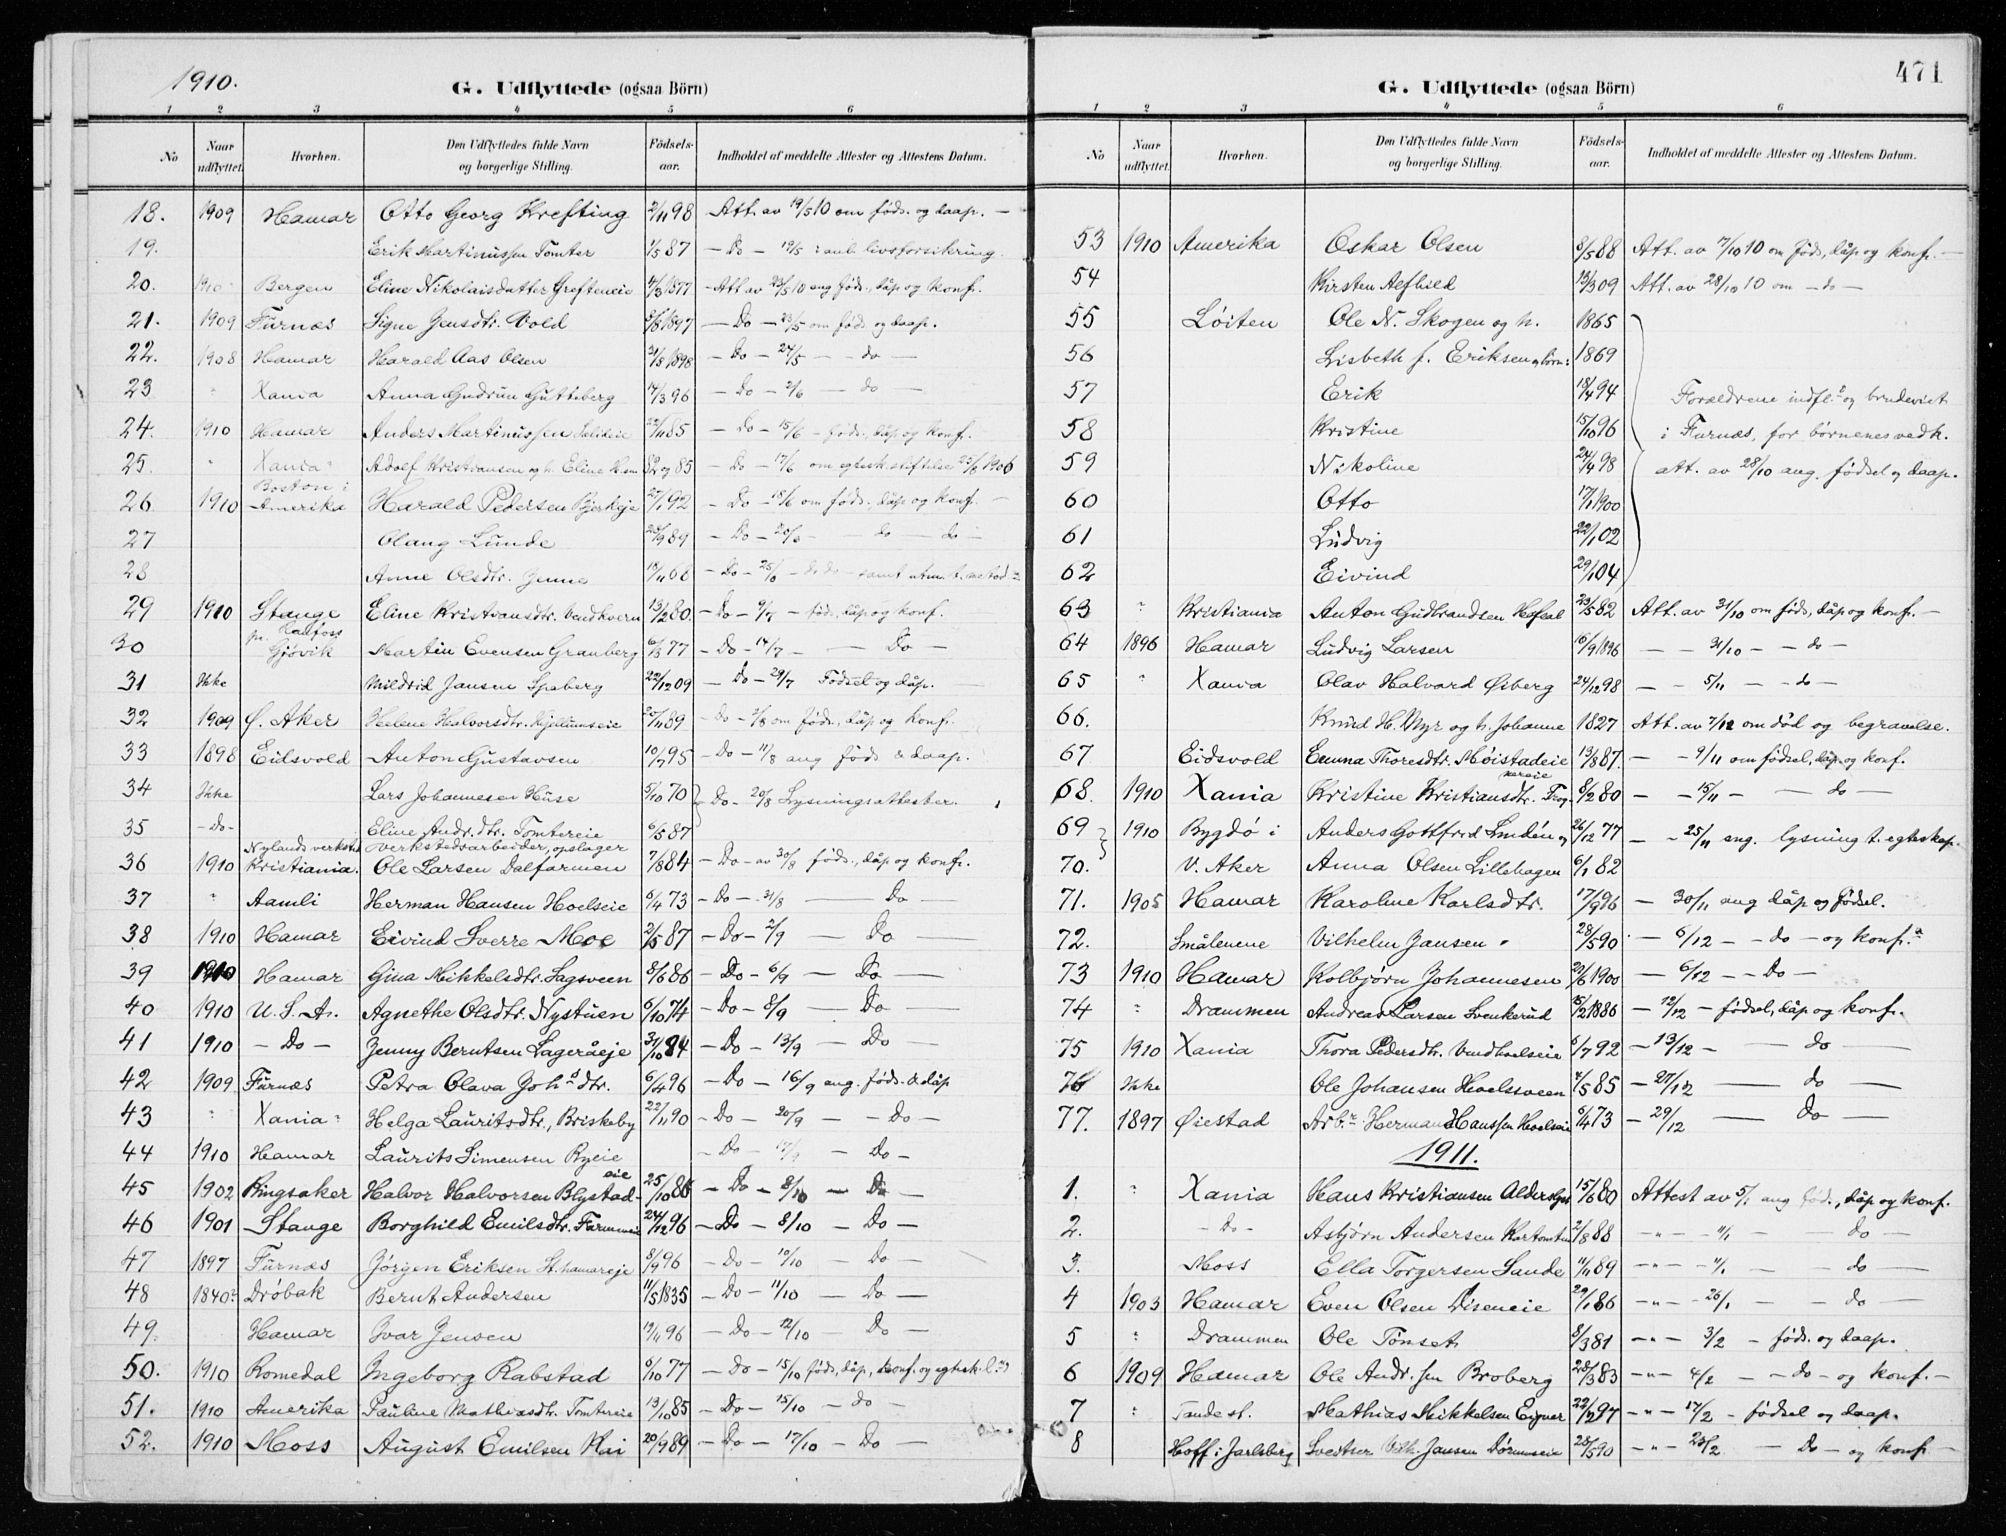 1910.
G. Udflyttede (ogsaa Börn)
1 2 3 4 5 6
No Naar udflyttet. Hvorhen. Den Udflyttedes fulde Navn og borgerlige Stilling. Födsels-aar. Indholdet af meddelte Attester og Attestens Datum.
18. 1909 Hamar Otto Georg Krefting 2/11 98 Att. av 19/5 10 om föds. og daap. —
19. Erik Martinussen Tomter 1/5 87 — Do — 19/5 : anl. livsforsikring
20. 1910 Bergen Eline Nikolaisdatter Grefteneie 4/3 1877 — Att av 23/5 10 ang föds., dåp og konf.
21. 1909 Furnæs Signe Jensdtr. Vold 1897 — Do — 23/5 om föds og daap.
22. 1908 Hamar Harald Aas Olsen 31/8 1898 — Do — 24/5 — do —
23 " Xania Anna Gudrun Guttiberg 14/3 96 — Do — 2/6 — do —
24. 1910 Hamar Anders Martinussen 22/11 85 — do — 15/6 — föds., dåp og konf.
25. " Xania Adolf Kristiansen og h. Eline 82 og 85 — Do — 17/6 om egtesk. stiftelse 1906
26 1910 Boston i Amerika Harald Pedersen Bjerkeje 27/1 92 — Do — 18/6 om föds., dåp og konf. —
27 Olaug Lunde 9 89 — Do — 20/6 — do — do —
28 Anne Olsdtr. Jenne 19/11 66 — Do —
29 1910 Stange Eline Kristiansdtr. Vendkvern 13/2 80. — Do — 9/7 — föd., dåp og konf.
30 p. Raufoss Gjøvik Martin Evensen Granberg 6/3 77 — Do — 14/7 — Do —
31 Ikke Mildrid Jansen Spaberg 22/12 09 — Do — 29/7 Födsel og dåp. —
32 1909 Ø. Aker Helene Halvorsdtr. Kjellumseie 20/11 89 — Do — 2/8 om föds., dåp og konf.
33 1898 Eidsvold Anton Gustavsen 10/7 95 — Do — 11/8 ang föds & daap.
34 Ikke Lars Johannesen Huse 5/10 70 } Do — 20/8 Lysningsattester.
35 — Do — Eline Andr. dtr. Tomtereie 6/5 87
36 1910 Nylands verksted Kristiania. Verkstedsarbeider, opslager Ole Larsen Dalfarmen 7/8 84 — Do — av 30/8 föds., dåp og konf.
37 " Aamli Herman Hansen Hoelseie 6/4 73 — Do — 31/8 — Do —
38 1910 Hamar Eivind Sverre Moe 2/5 87 — Do — 2/9 — Do —
39 1910 Hamar Gina Mikkelsdtr. Sagsveen 8/6 86 — Do — 6/9 — Do —
40 1910 U. S. A. Agnethe Olsdtr. Nystuen 6/10 74 — Do — 8/9 — Do —
41 1910 — Do — Jenny Berntsen Lageråeje 31/10 84 — Do — 13/9 — Do —
42 1909 Furnæs Petra Olava Johs dtr. 6/4 96 — Do — 16/9 ang. föds. & dåp
43 " Xania Helga Lauritsdtr., Briskeby 22/11 90 — Do — 20/9 — Do —
44 1910 Hamar Laurits Simensen Ryeie — Do — 17/9 — Do —
45 1902 Ringsaker Halvor Halvorsen Blystadeie 25/10 86 — Do — 8/10 — Do —
46 1901 Stange Borghild Emilsdtr. 24/12 96 — Do — 8/10 — Do —
47 1897 Furnæs Jörgen Eriksen St. hamareje 8/9 96 — Do — 10/10 — Do —
48 1840? Dröbak Bernt Andersen 11/5 1835 — Do — 11/10 — Do —
49. Hamar Ivar Jensen 19/11 96 — Do — 12/10 — Do —
50. 1910 Romedal Ingeborg Rabstad 6/10 77 — Do — 15/10 föds, dåp, konf. og egtesk.
51. 1910 Amerika Pauline Mathiasdtr. Tomtereie 13/10 85 — Do — 15/10 — do —
52. 1910 Moss August Emilsen 20/9 89 — Do — 17/10 — Do —
471
G. Udflyttede (ogsaa Börn)
1 2 3 4 5 6
No Naar udflyttet. Hvorhen. Den Udflyttedes fulde Navn og borgerlige Stilling. Födsels-aar. Indholdet af meddelte Attester og Attestens Datum.
53 1910 Amerika Oskar Olsen 8/5 88 Att. av 7/10 10 om föds, dåp og konf. —
54 Kirsten Aefhild 13/3 09 Att. av 28/10 10 om — do —
55 Löiten Ole N. Skogen og h. 1865
56 Lisbeth f. Eriksen og börn: 1869
57 Erik 18/4 94 Forældrene indfl. og brudeviet
58 Kristine 15/10 96 i Furnæs, for börnenes vedk.
59 Nikoline 24/4 98 att. av 28/10 ang. födsel og daap.
60 Otto 17/1 1900
61 Ludvig 22/1 02
62 Eivind 29/1 04
63 " Kristiania Anton Gudbrandsen Hofsal 23/5 82 Att. av 31/10 om föds, dåp og konf. —
64 1896 Hamar Ludvig Larsen 16/9 1896 — — 31/10 — — do —
65 " Xania Olav Halvard Öiberg 24/12 98 — — 5/11 — — do —
66. Knud H. Myr og h. Johanne 1827 Att. av 7/12 om död og begravelse.
67 Eidsvold Emma Thoresdtr. Möistadeie 13/8 87. — — 9/11 om födsel, dåp og konf.
68. 1910 Xania Kristine Kristiansdtr. 8/2 80 — — 15/11 — — do —
69 } 1910 Bygdö i Anders Gottfred Lindén og 26/12 77 — — 25/11 ang. lysning t. egteskap.
70. V. Aker Anna Olsen Lillehagen 6/1 82
71. 1905 Hamar Karoline Karlsdtr. 17/9 96 — 30/11 ang dåp og födsel.
72. Smålenene Vilhelm Jansen 28/5 90. — 6/12 — — do — og konf.
73 1910 Hamar Kolbjörn Johannesen 20/6 1900 — 6/12 — — Do —
74 " Drammen Andreas Larsen Svenkerud 15/2 1886 — 12/12 — födsel, dåp og konf.
75 1910 Xania Thora Pedersdtr. Vendkvelseie 6/7 92 — 13/12 — — do —
76 Ikke Ole Johansen Hoelsveen 4/5 85 — 27/12 — do —
77. 1897 Öiestad Arbr. Herman Hanssen Hoelseie 6/4 73 — 29/12 — Do —
1911.
1. " Xania Hans Kristiansen 15/6 80 Attest av 5/1 ang föd., dåp og konf.
2. — Do — Asbjörn Andersen 2/8 88 — " — — 11/1 — do —
3. Moss Ella Torgersen Sande 11/11 89 — " — — 11/1 — do —
4 1903 Hamar Even Olsen Diseneie 29/1 86 — " — — 26/1 — do —
5 " Drammen Ole Tönset 8/3 81 — " — 3/2 — föds. og daap.
6 1909 Hamar Ole Andr. sen Broberg 28/3 83 — " — 4/2 — — do — og konf. —
7 " Tande st. Mathias Mikkelsen Eigner 22/2 97 — " — 17/2 — födsel og daap.
8 Hoff i Jarlsberg Vilh. Jansen 28/5 90 — " — 23/2 — Do — og konf. —